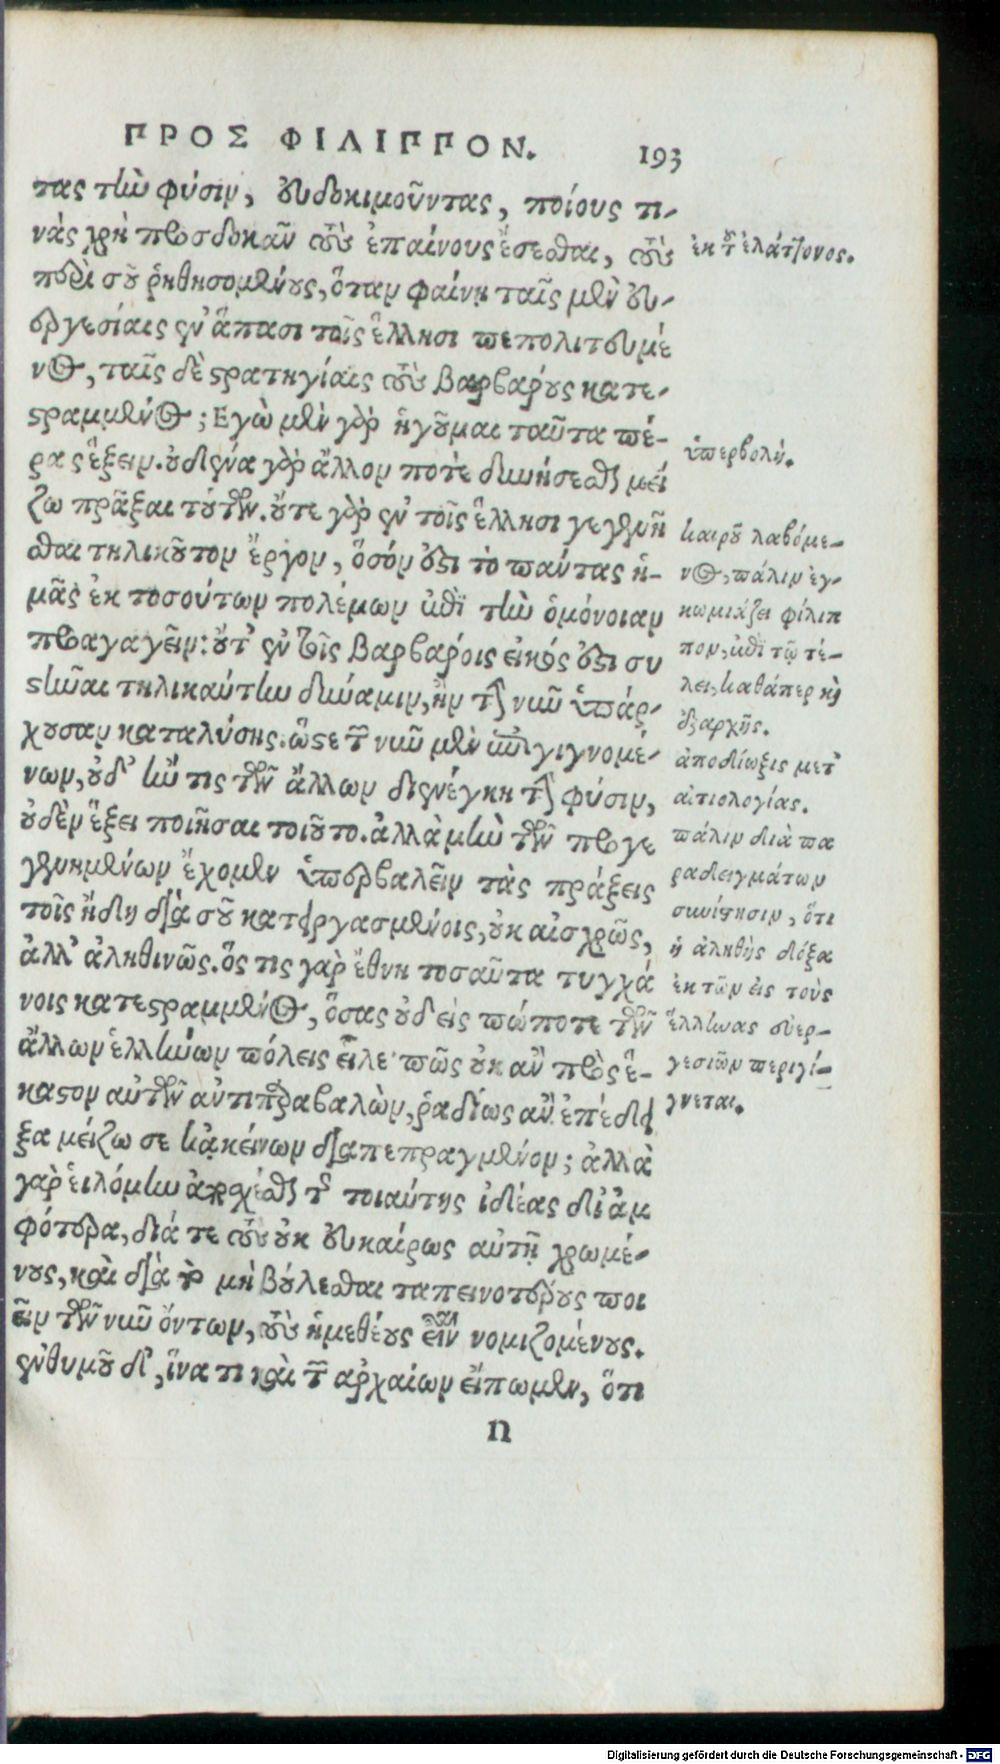 ΠΡΟΣ ΦΙΛΙΠΠΟΝ. 193
τας τὴν φύσιν, εὐδοκιμοῦντας, ποίους τι-
νάς χρὴ προσδοκᾶν τοὺς ἐπαίνους ἔσεσθαι, τοὺς
περὶ σοῦ ῥηθησομένους, ὅταν φαίνῃ ταῖς μὲν εὐ-
εργεσίαις ἐν ἅπασι τοῖς ἕλλησι πεπολιτευμέ
νος, ταῖς δὲ στρατηγίαις τοὺς βαρβάρους κατε-
στραμμένος; Εγὼ μὲν γὰρ ἡγοῦμαι ταῦτα πέ-
ρας ἕξειν. οὐδένα γὰρ ἄλλον ποτὲ δυνήσεσθαι μεί
ζω πρᾶξαι τούτων. οὔτε γὰρ ἐν τοῖς ἕλλησι γεγενῆ
σθαι τηλικοῦτον ἔργον, ὅσόν ἐστι τὸ πάντας ἡ-
μᾶς ἐκ τοσούτων πολέμων ἐπὶ τὴν ὁμόνοιαν
προαγαγεῖν: οὔτ' ἐν τοῖς βαρβάροις εἰκός ἐστι συ
στῆναι τηλικαύτην δύναμιν, ἢν τὴν νῦν ὑπάρ-
χουσαν καταλύσῃς. ὥστε τῶν νῦν μὲν ἐπιγιγνομέ-
νων, οὐδ' ἤν τις τῶν ἄλλων διενέγκῃ τὴν φύσιν,
οὐδὲν ἕξει ποιῆσαι τοιοῦτο. ἀλλὰ μὴν τῶν προγε
γενημένων ἔχομεν ὑπερβαλεῖν τὰς πράξεις
τοῖς ἤδη διὰ σοῦ κατειργασμένοις, οὐκ αἰσχρῶς,
ἀλλ' ἀληθινῶς. ὅς τις γὰρ ἔθνη τοσαῦτα τυγχά
νοις κατεστραμμένος, ὅσας οὐδείς πώποτε τῶν
ἄλλων ἑλλήνων πόλεις εἷλε· πῶς οὐκ ἂν πρὸς ἕ-
καστον αὐτῶν ἀντιπαραβαλὼν, ῥαδίως ἂν ἐπέδει
ξα μείζω σε κἀκείνων διαπεπραγμένον; ἀλλὰ
γὰρ εἱλόμην ἀποσχέσθαι τῆς τοιαύτης ἰδέας δι' ἀμ
φότερα, διά τε τοὺς οὐκ εὐκαίρως αὐτῇ χρωμέ-
νους, καὶ διὰ τὸ μὴ βούλεσθαι ταπεινοτέρους ποι
εῖν τῶν νῦν ὄντων, τοὺς ἡμιθέους εἶναι νομιζομένους.
ἐνθυμοῦ δ', ἵνα τι καὶ τῶν ἀρχαίων εἴπωμεν, ὅτι
n
ἐκ τοῦ ἐλάττονος.
ὑπερβολή.
καιροῦ λαβόμε-
νος, πάλιν ἐγ-
κωμιάζει φίλιπ
πον, ἐπὶ τῷ τέ-
λει, καθάπερ καὶ
ἐξαρχῆς.
ἀποδίωξις μετ'
αἰτιολογίας.
πάλιν διὰ πα
ραδειγμάτων
συνίστησιν, ὅτι
ἡ ἀληθὴς δόξα
ἐκ τῶν εἰς τοὺς
ἕλληνας εὐερ-
γεσιῶν περιγί-
γνεται.
Digitalisierung gefördert durch die Deutsche Forschungsgemeinschaft - DFG